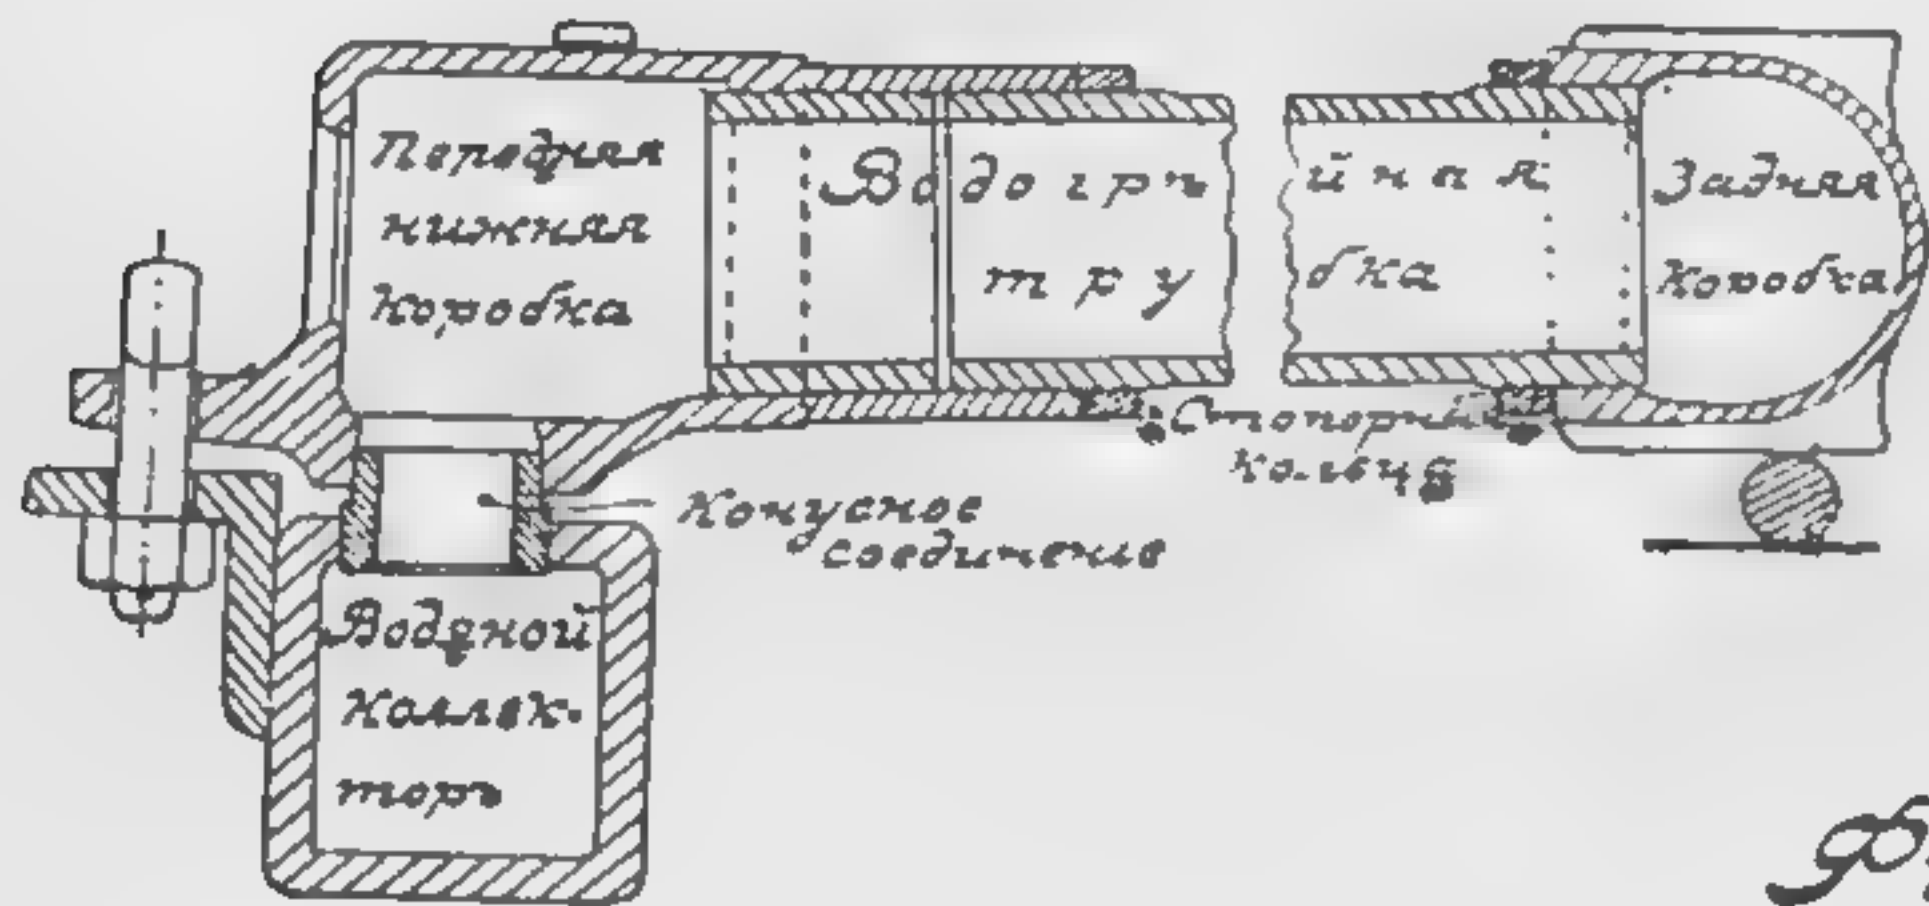 Передняя
нижняя
коробка
Водогрѣйная
трубка
Задняя
коробка
Стопорныя
кольца
Конусное
соединение
Водяной
коллек-
торъ